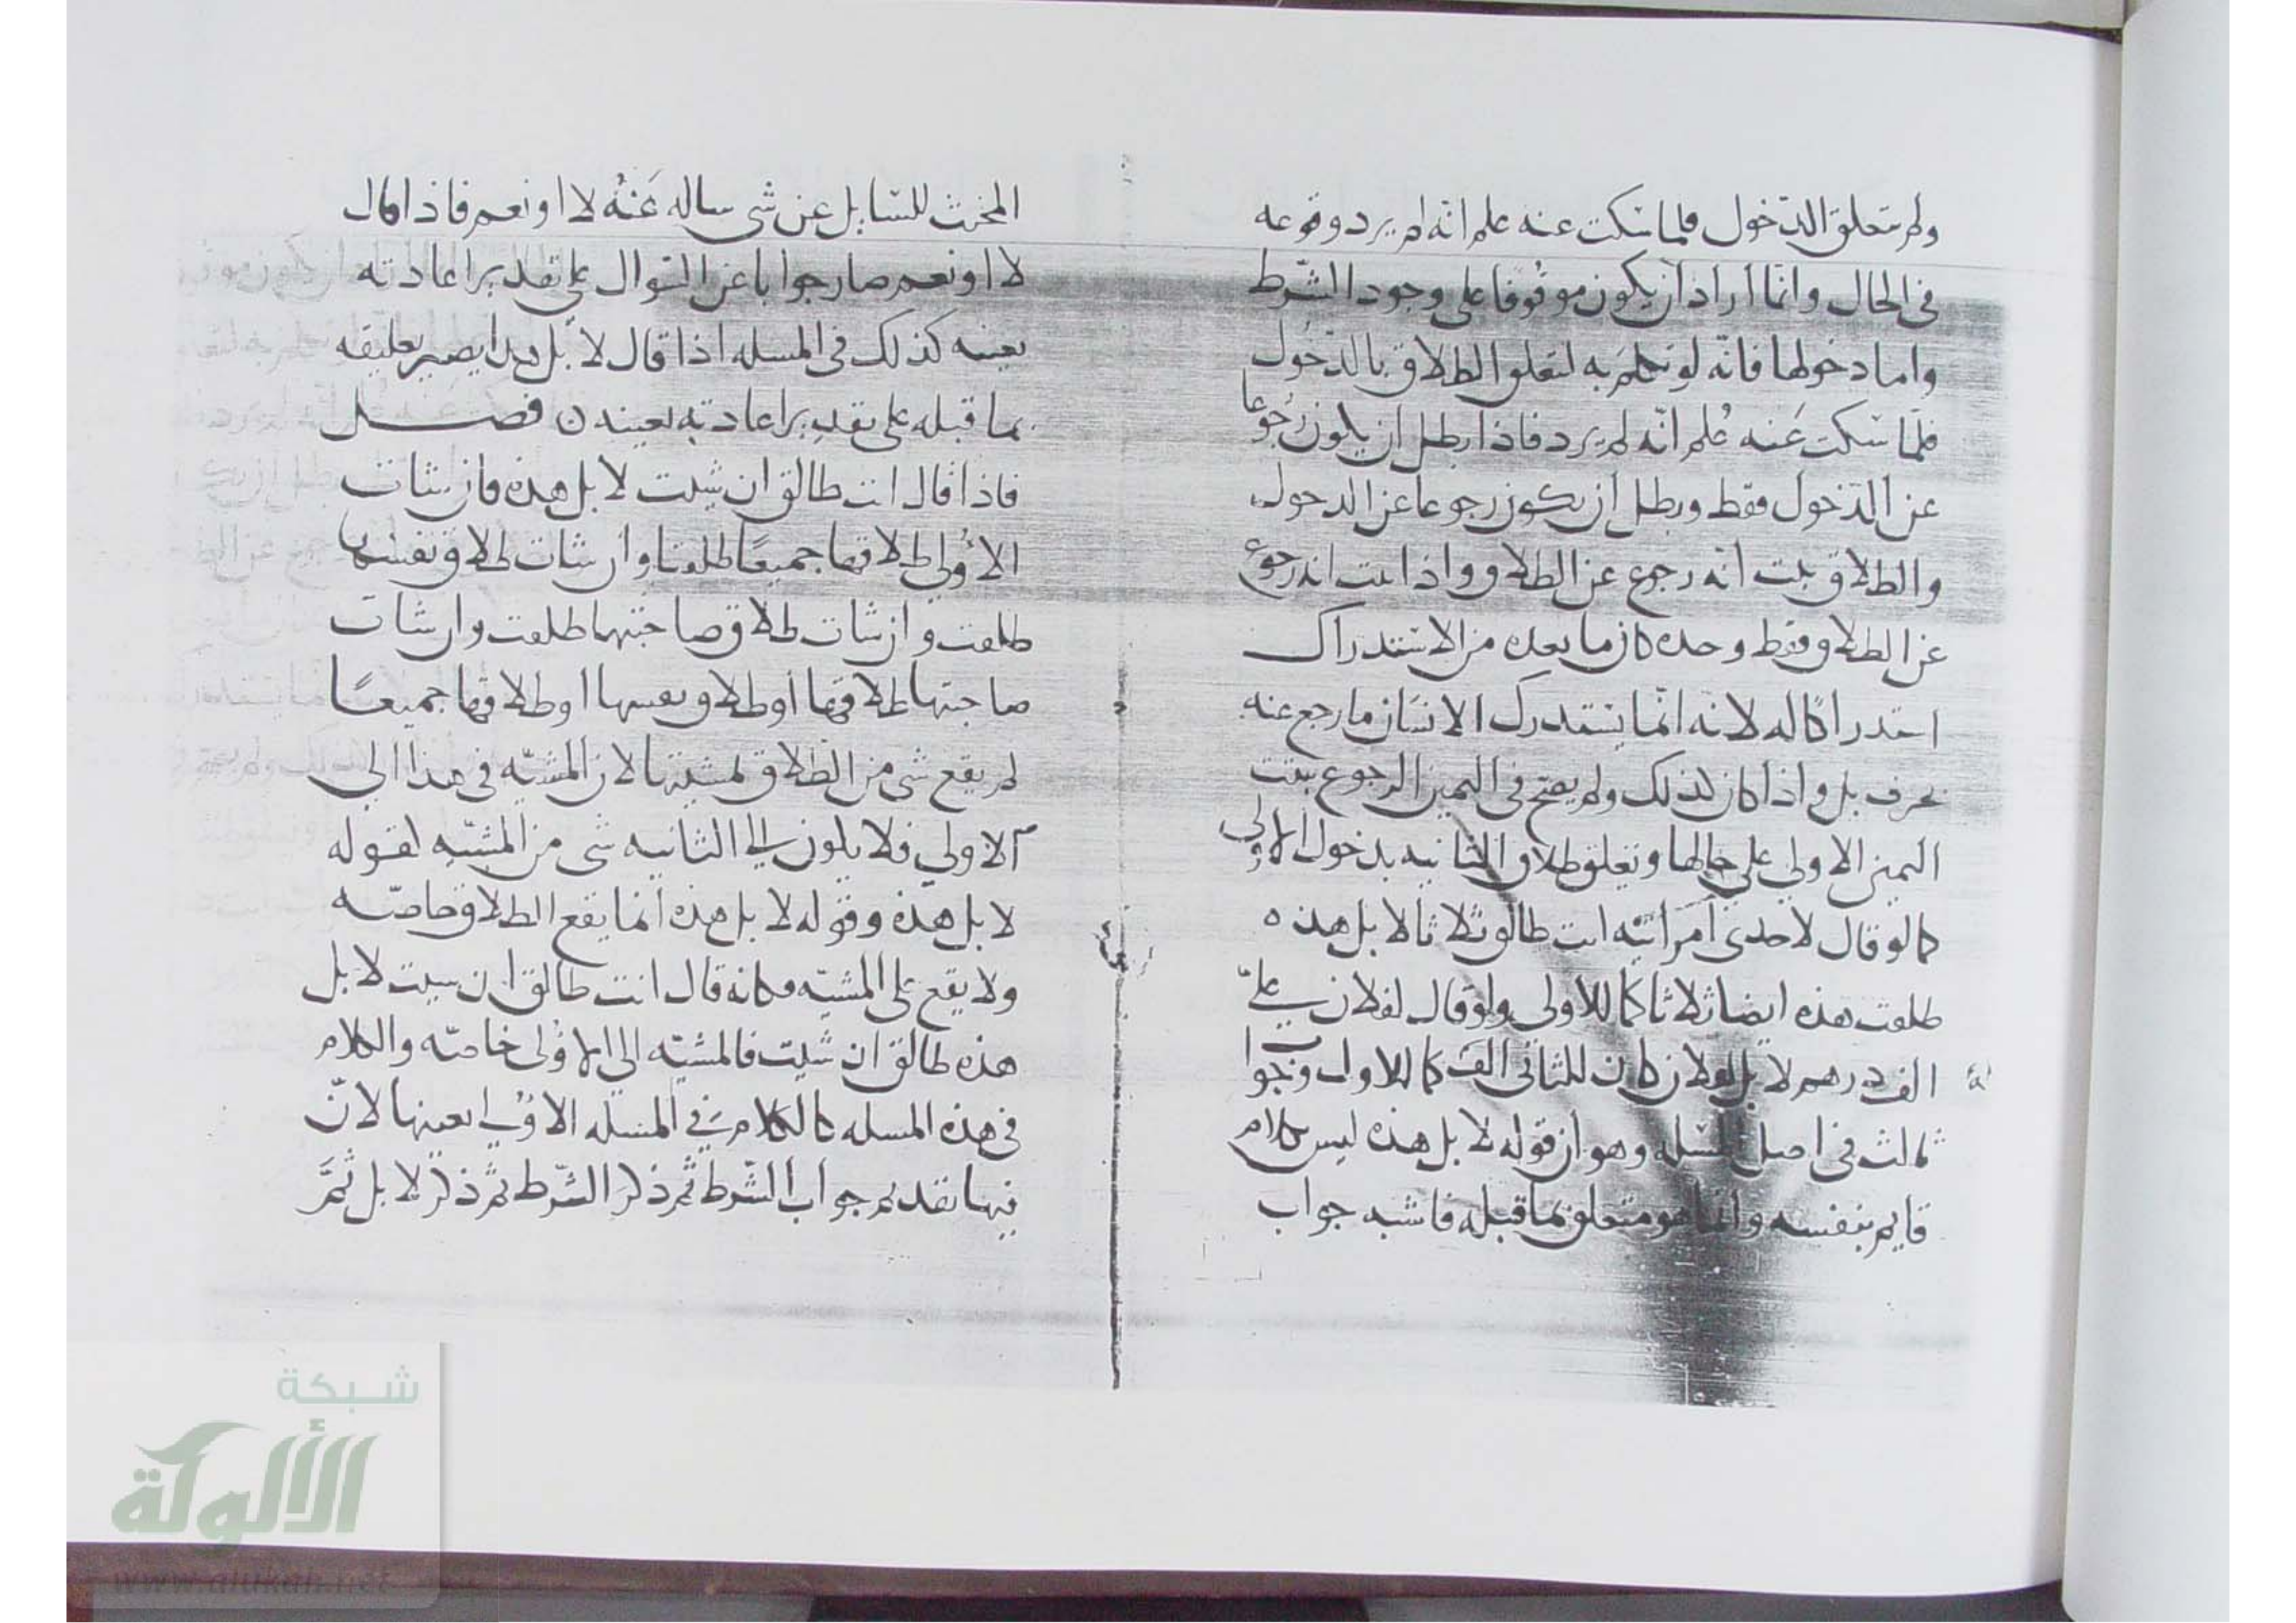 ولم يتعلق الدّخول فلما سكت عنه علم انّه لم يرد وقوعه
في الحال وانّما أراد أن يكون موقوفا على وجود الشّرط
واما دخولها فانّه لو تكلم به لتعلق الطلاق بالدّخول
فلمّا سكت عَنه عُلم انّه لم يرد فاذا بطل أن يكون رُجوعا
عن الدّخول فقط وبطل أن يكون رجوعا عن الدخول
والطلاق ثبت أنه رجوع عن الطلاق واذا ثبت انه رجوع
عن الطلاق فقط وحده كان ما بعده من الاستدراك
استدراكا له لانه انّما يستدرك الانسان ما رجع عنه
بحرف بل واذا كان كذلك ولم يصح في اليمين الرجوع بقيت
اليمين الاولي علي حالها وتعلق طلاق الثانيه بدخول الاولي
كما لو قال لاحدى امرأتيه انت طالق ثلاثا لا بل هذه ه
طلقت هذه ايضا ثلاثا كما للاولى ولو قال لفلان عليّ
الف درهم لا بل لفلان كان للثاني الف كما للاول وجواب
ثالث في اصل المسله وهو ان قوله لا بل هذه ليس بكلام
قايم بنفسه وانما هو متعلق بما قبله فاشبه جواب
المخبر للسّايل عن شي ساله عَنهُ لا او نعم فاذا قال
لا او نعم صار جوابا عن السّوال على تقدير اعادته
بعينه كذلك في المسله اذا قال لا بل هذا يصير تعليقه
بما قبله على تقدير اعادته بعينه ن فصل
فاذا قال انت طالق ان شيت لا بل هذه فان شات
الاوُلي طلاقهما جميعًا طلقتا وان شات طلاق نفسها
طلقت وان شات طلاق صاحبتها طلقت وان شات
صاحبتها طلاقهما أو طلاق نفسها او طلاقها جميعًا
لم يقع شي من الطلاق لمشيتها لان المشيّه في هذا الي
الاولي فلا يكون الي الثانيه شي من المشيّه لقوله
لا بل هذه وقوله لا بل هذه انما يقع الطلاق خاصّه
ولا يقع على المشيّه فكانه قال انت طالق ان شيت لا بل
هذه طالق ان شيت فالمشيّه الى الاوُلى خاصّه والكلام
في هذه المسله كالكلام في المسله الاوُلي بعينها لانّ
فيها تقديم جواب الشّرط ثم ذكر الشّرط ثم ذكر لا بل ثمَّ
شبكة
الألوكة
www.alukah.net